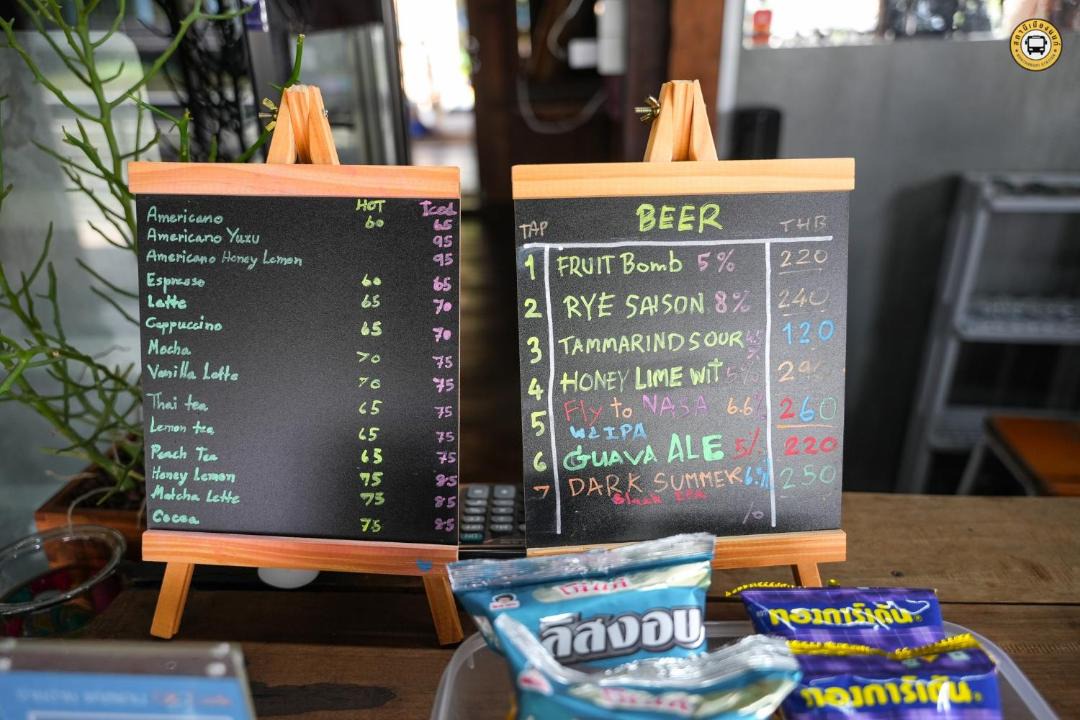 HOT Iced
Americano 60 65
Americano Yuzu 95
Americano Honey Lemon 95
Espresso 60 65
Latte 65 70
Cappuccino 65 70
Mocha 70 75
Vanilla Latte 70 75
Thai tea 65 75
Lemon tea 65 75
Peach Tea 65 75
Honey Lemon 75 85
Matcha Latte 75 85
Cocoa 75 85
TAP BEER THB
1 FRUIT Bomb 5% 220
2 RYE SAISON 8% 240
3 TAMMARIND SOUR 120
4 HONEY LIME WIT 5%
5 Fly to NASA 6.6% 260
WC IPA
6 GUAVA ALE 5% 220
7 DARK SUMMER 6% 250
Black IPA
%
ลิสงอบ
ทองการ์เด้น
ทองการ์เด้น